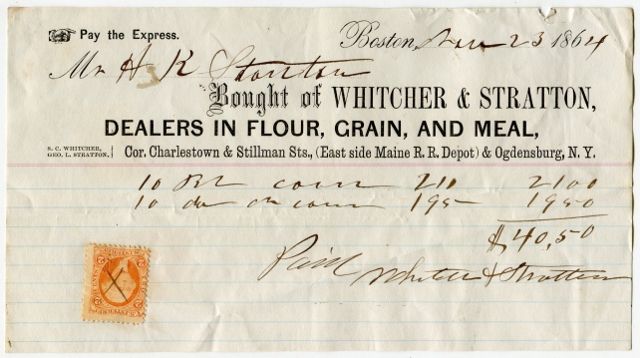 Pay the Express.
Boston, Nov 23 1864
Mr H K Stanton
Bought of WHITCHER & STRATTON,
DEALERS IN FLOUR, GRAIN, AND MEAL,
S. C. WHITCHER,
GEO. L. STRATTON,
Cor. Charlestown & Stillman Sts., (East side Maine R. R. Depot) & Ogdensburg, N. Y.
10 corn 210 2100
10 do corn 195 1950
$40,50
Paid
Whitcher & Stratton